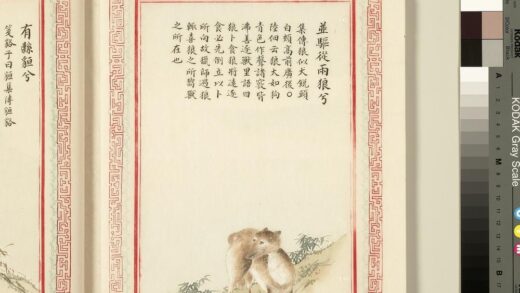 並驅從兩狼兮
集傳狼似犬銳頭
白頰高前廣後〇
陸佃云狼大如狗
青色作聲諸竅皆
沸善逐獸里語曰
狼卜食狼將遠逐
食必先倒立以卜
所向故獵師遇狼
輒喜狼之所嚮獸
之所在也
有縣貆兮
箋貉子曰貆集傳貆貉
Kodak
KODAK Gray Scale
A 1 2 3 4 5 6 M 8 9 10 11 12 13 14 15 B 17